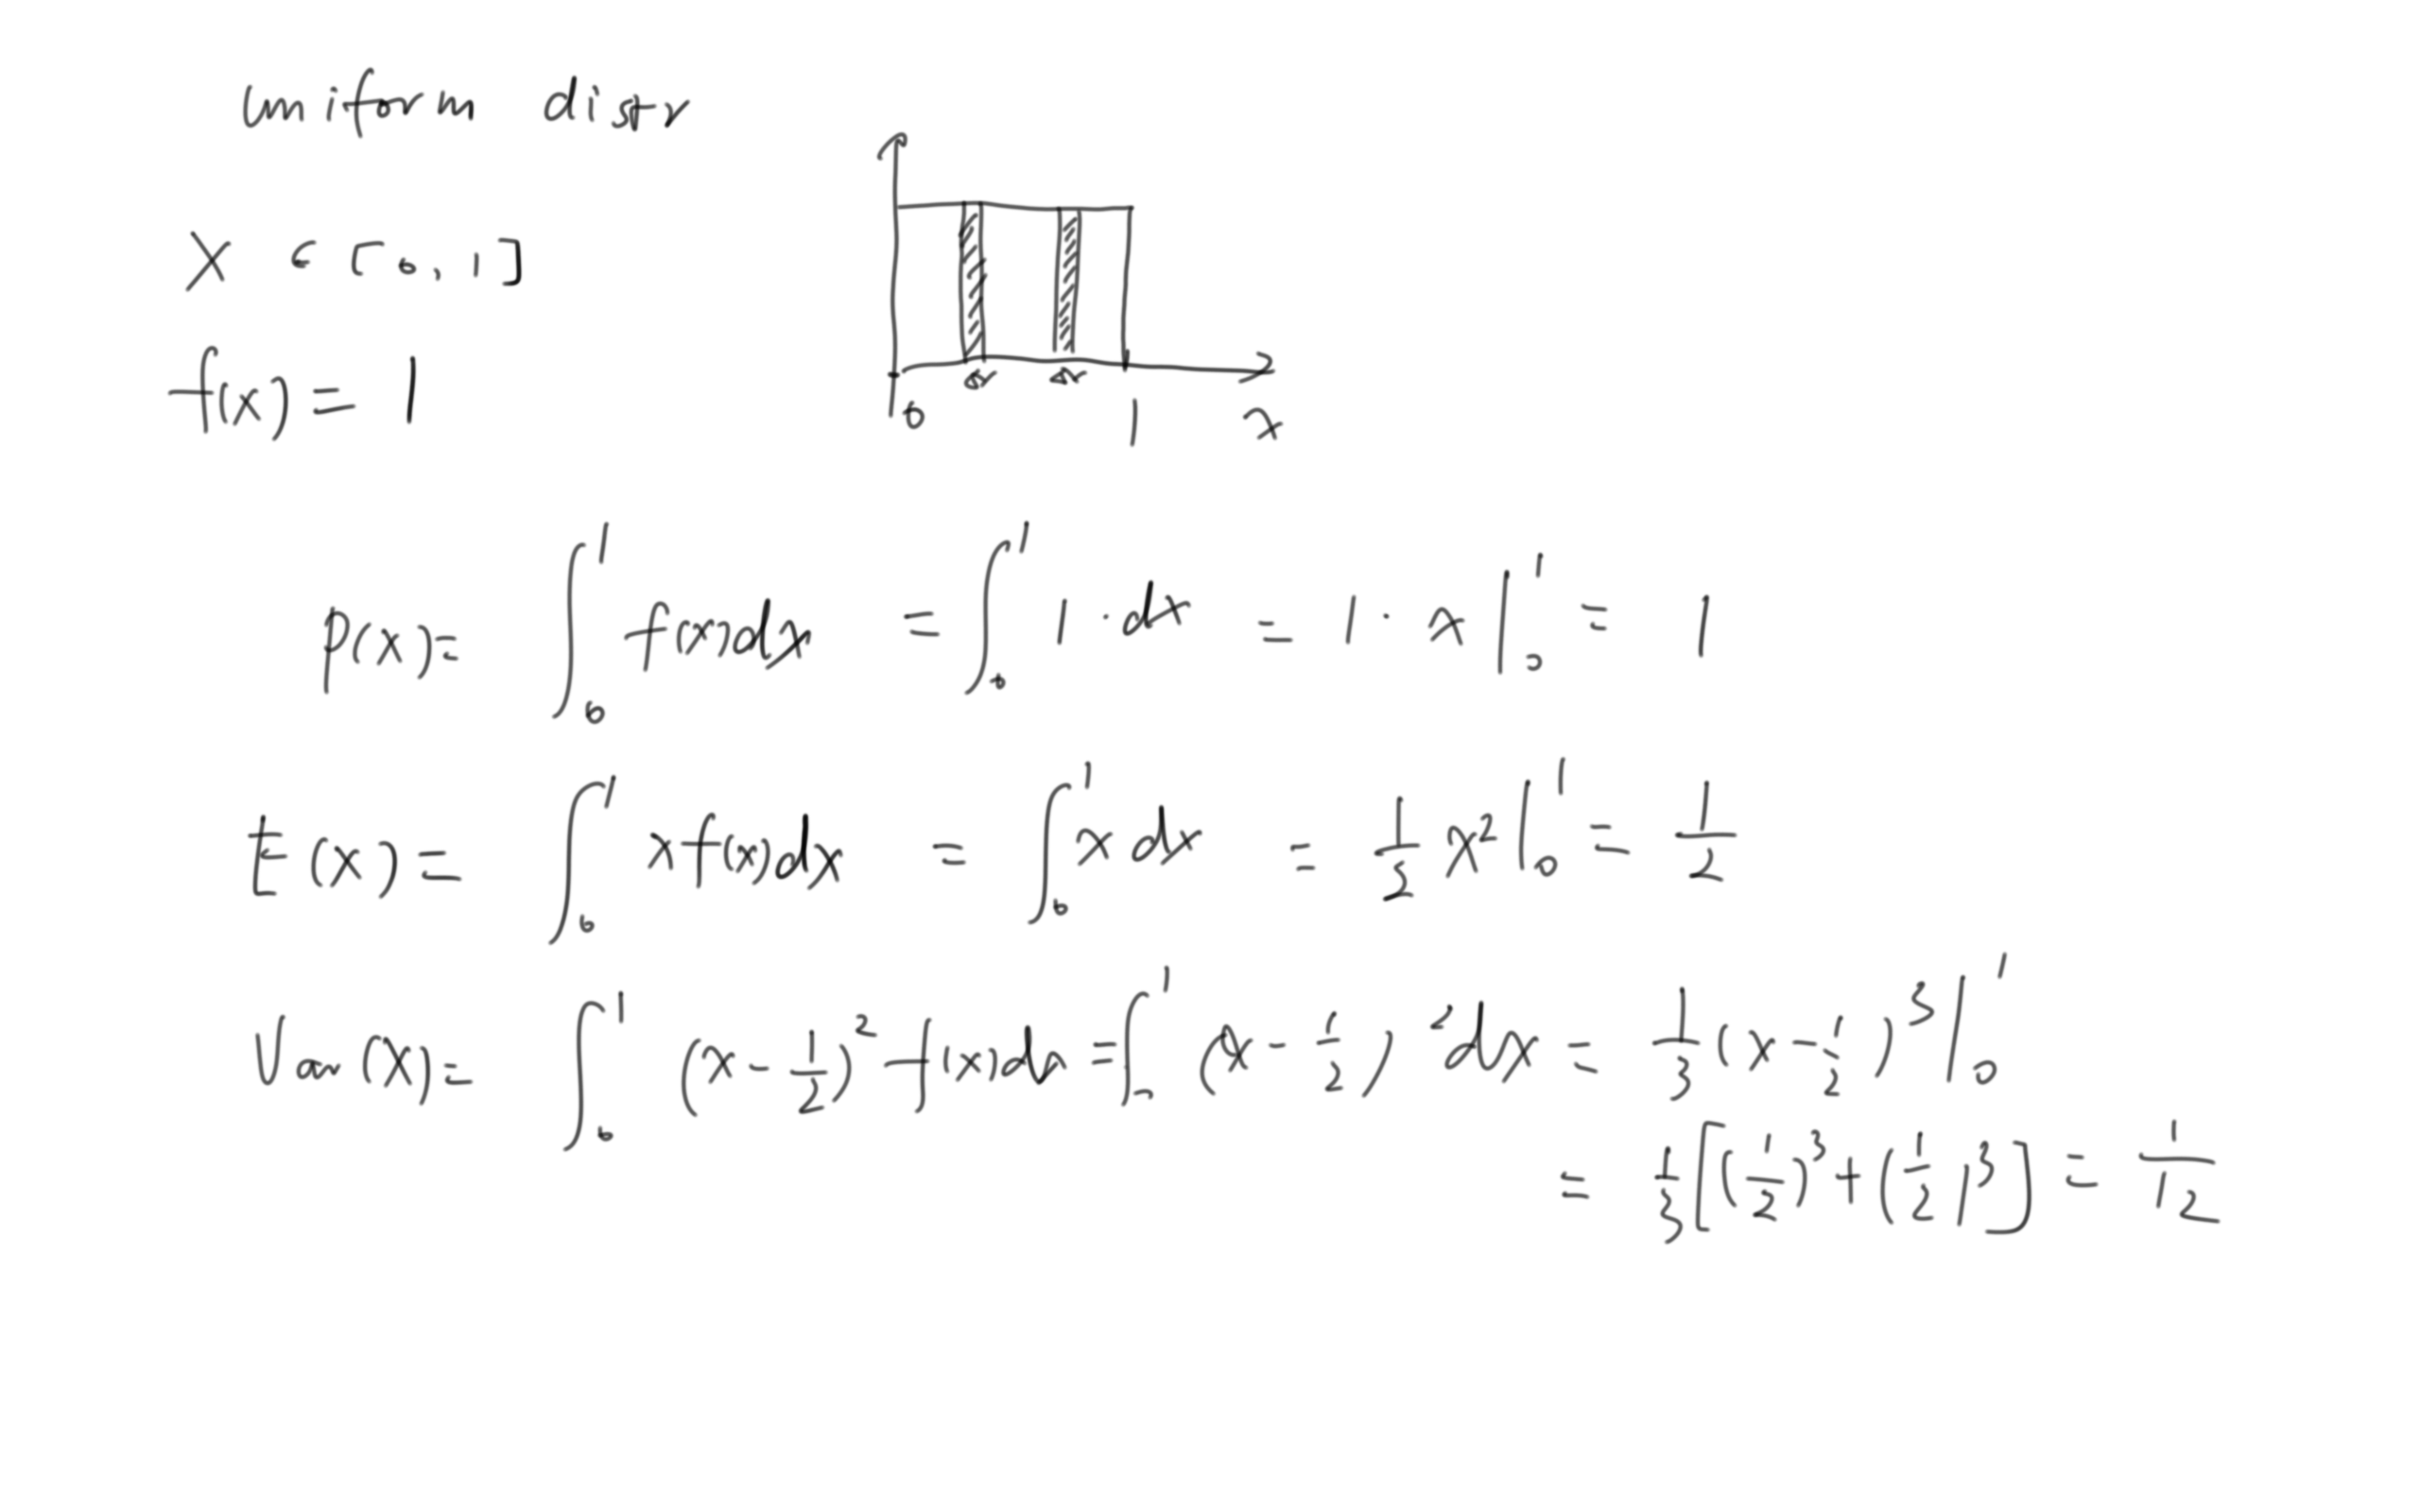 uniform distr
X ∈ [0, 1]
f(x) = 1
dx dx
0 1 x
P(X) = ∫₀¹ f(x)dx = ∫₀¹ 1 · dx = 1 · x |₀¹ = 1
E(X) = ∫₀¹ x f(x)dx = ∫₀¹ x dx = 1/2 x² |₀¹ = 1/2
Var(X) = ∫₀¹ (x - 1/2)² f(x)dx = ∫₀¹ (x - 1/2)² dx = 1/3 (x - 1/2)³ |₀¹
= 1/3 [(1/2)³ + (1/2)³] = 1/12